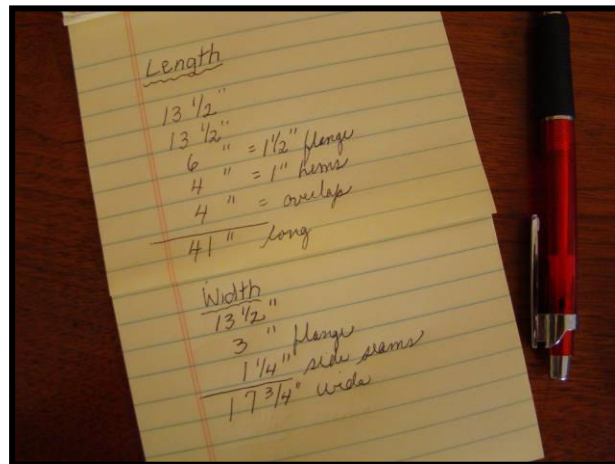 Length
13 1/2"
13 1/2"
6 " = 1 1/2" flange
4 " = 1" hems
4 " = overlap
41 " long
Width
13 1/2"
3 " flange
1 1/4" side seams
17 3/4" wide